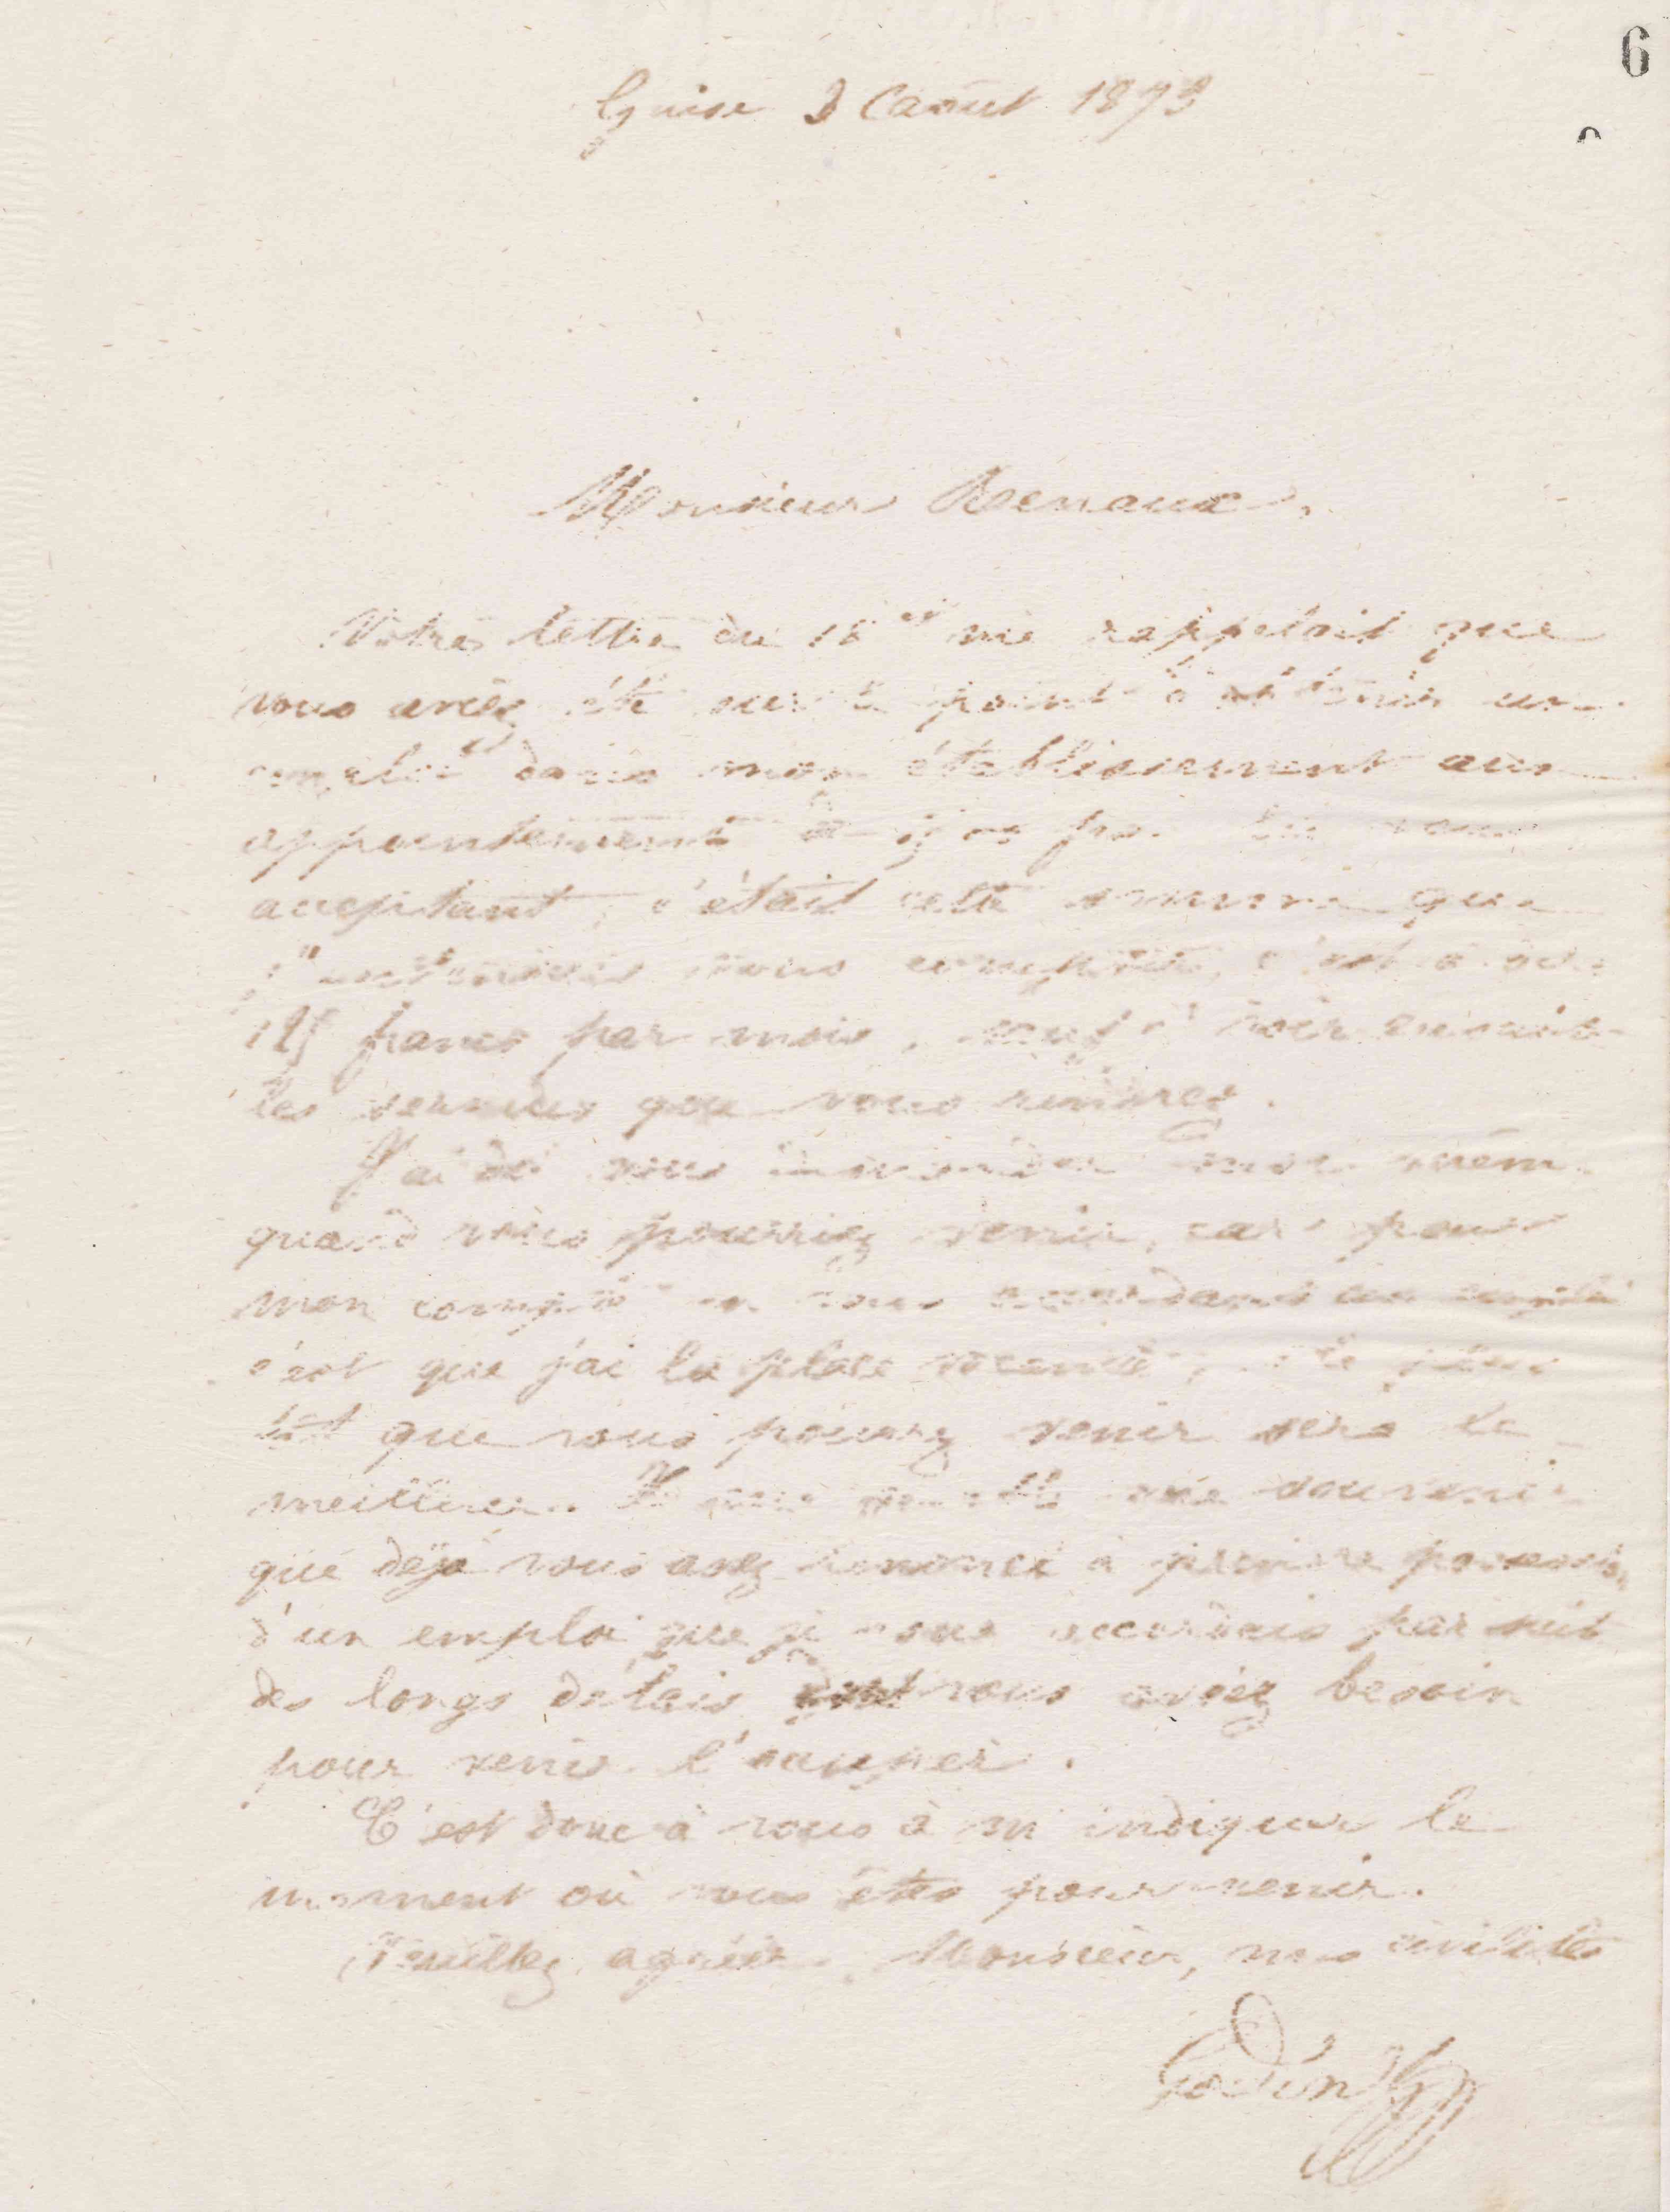 6
Guise 3 Août 1873
Monsieur Renaux,
Votre lettre du me rappelait que
vous aviez été sur le point d'obtenir un
emploi dans mon établissement aux
appointements de frs. En vous
acceptant, c'était cette somme que
j'entendais vous compter, c'est à dire
125 francs par mois, sauf à voir ensuite
les services que vous rendrez.
J'ai dû vous demander moi même
quand vous pourriez venir, car pour
mon compte en vous accordant un emploi
c'est que j'ai la place vacante, le plus
tôt que vous pourrez venir sera le
meilleur. Il vous souvenir
que déjà vous avez renoncé à prendre possession
d'un emploi que je vous accordais par suite
des longs délais dont vous aviez besoin
pour venir l'occuper.
C'est donc à vous à m'indiquer le
moment où vous êtes pour venir.
Veuillez agréer, Monsieur, mes civilités
Godin